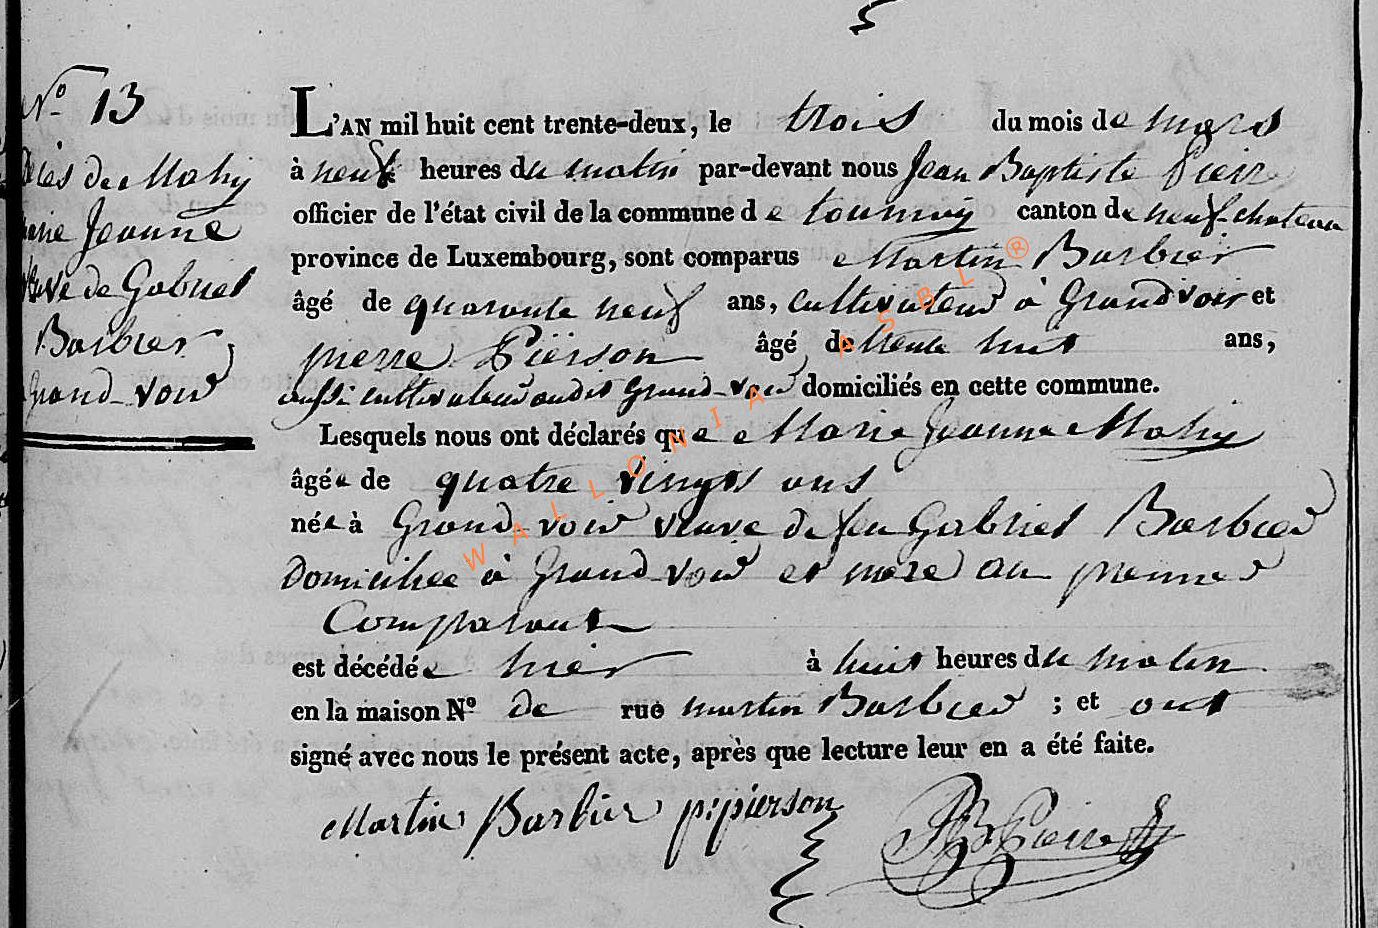 5
N° 13
Décès de Mahy
Marie Jeanne
Veuve de Gabriel
Barbier
Grand-voir
L'AN mil huit cent trente-deux, le trois du mois de mars
à neuf heures du matin par-devant nous Jean Baptiste Pierre
officier de l'état civil de la commune de tournay canton de neufchateau
province de Luxembourg, sont comparus Martin Barbier
âgé de quarante neuf ans, cultivateur à Grandvoir et
pierre Piërson âgé de trente huit ans,
aussi cultivateur audit Grand-voir domiciliés en cette commune.
Lesquels nous ont déclarés que Marie Jeanne Mahy
âgée de quatre vingts ans
née à Grand-voir veuve de feu Gabriel Barbier
Domiciliée à Grand-voir et mere au premier
Comparant
est décédée hier à huit heures du matin
en la maison N° de rue martin Barbier ; et ont
signé avec nous le présent acte, après que lecture leur en a été faite.
Martin Barbier p:pierson JB Pierre
WALLONIA ASBL ®